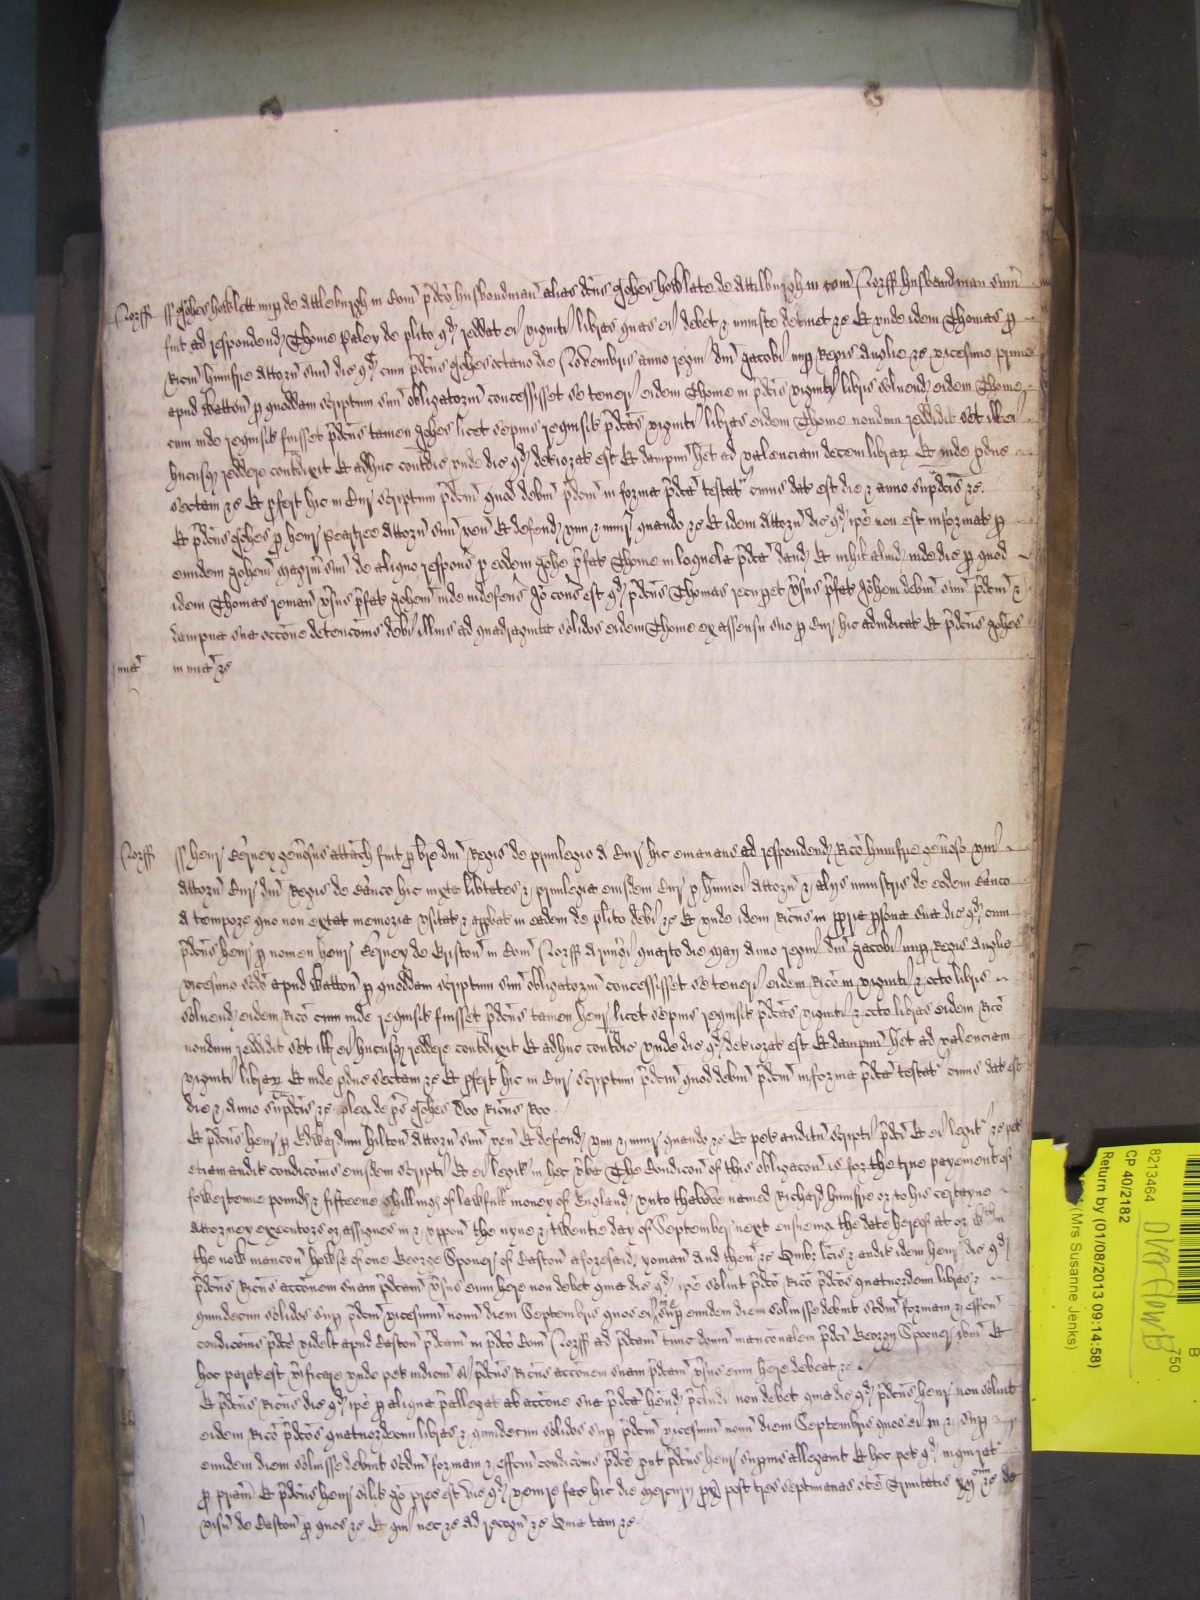 Norff ss Johes Howlett nup de Attleburgh in Com p̄dcō husbondman alias dcūs Johes howlate de Attilburgh in Com Norff husbandman sum
fuit ad respondend Thome Paley de plito qd reddat ei viginti libras quas ei debet & iniuste detinet &c Et unde idem Thomas p
Ricm humfrie attorn suu dic qd cum p̄dcūs Johes octavo die Novembris anno regni dni Jacobi nup Regis Anglie &c vicesimo primo
apud Watton p quoddam scriptum suu obligatorm concessisset se teneri eidem Thome in p̄dcīs viginti libris solvend eidem Thome
cum inde requisit fuisset p̄dcūs tamen Johes licet sepius requisit p̄dcās viginti libras eidem Thome nondum reddidit set ill ei
hucusq reddere contradixit Et adhuc contradic unde dic qd deteriorat est Et dampnm het ad valenciam decem librar Et inde pduc
sectam &c Et pfert hic in Cur scriptum p̄dcm quod debitm p̄dcm in forma p̄dcā testat cuius dat est die & anno sup̄dcīs &c
Et p̄dcūs Johes p Henr Peartree attorn suu ven Et defend vim & iniur quando &c Et idem attorn dic qd ipe non est informat p
eundem Johem magrm suu de aliquo respons p eodem Johe p̄fat Thome in loquela p̄dcā dand Et nichil aliud inde dic p quod
idem Thomas reman vsus p̄fat Johem inde indefens Io cons est qd p̄dcūs Thomas recupet vsus p̄fat Johem debitm suu p̄dcm &
dampna sua occone detencois debi illius ad quadraginta solidos eidem Thome ex assensu suo p Cur hic adiudicat Et p̄dcūs Johes
mia in mia &c
Norff ss Henr Berney genosus attach fuit p bre dni Regis de privilegio a Cur hic emanans ad respondend Rico humfrie genoso uni
attorn Cur dni Regis de Banco hic iuxta libtates & privilegia eiusdem Cur p huiusmodi attorn & aliis ministris de eodem Banco
a tempore quo non extat memoria usitat & approbat in eadem de plito debi &c Et unde idem Ricus in ppria psona sua dic qd cum
p̄dcūs Henr p nomen Henr Berney de in Com Norff Armigi quarto die Maij anno regni dni Jacobi nup Regis Anglie
vicesimo scdo apud Watton p quoddam scriptum suu obligatorm concessisset se teneri eidem Rico in viginti & octo libris
solvend eidem Rico cum inde requisit fuisset p̄dcūs tamen Henr licet sepius requisit p̄dcās viginti & octo libras eidem Rico
nondum reddidit set ill ei hucusq reddere contradixit Et adhuc contradic unde dic qd deteriorat est Et dampnm het ad valenciam
viginti librar Et inde pduc sectam &c Et pfert hic in Cur scriptum p̄dcm quod debitm p̄dcm in forma p̄dcā testat cuius dat est
die & Anno sup̄dcīs &c pleg de ps Johes Doo Ricus Roo
Et p̄dcūs Henr p Edwardum hilton attorn suu ven Et defend vim & iniur quando &c Et pet auditu scripti p̄dci Et ei legit &c pet
etiam audit condicois eiusdem scripti Et ei legit in hec vba The Condicon of this obligacon is for the true payement of
fowertene pounds & fifteene shillings of lawfull money of England unto thabove named Richard humfrie or to his certayne
attorney executors or assignes in & uppon the nyne & twentie day of September next ensueing the date hereof at or wthin
the now mancon howse of one George Spooner of Caston aforesaid yoman And then &c Quibz lcīs & audit idem Henr dic qd
p̄dcūs Ricus acconem suam p̄dcam vsus eum here non debet quia dic qd ipe solvit p̄dcō Rico p̄dcōs quatuordecim libras &
quindecim solidos sup p̄dcm vicesimm nonu diem Septembris quos ei sup eundem diem solvisse debuit scdm formam & effcm
condicois p̄dcē videlt apud Caston p̄dcam in p̄dcō Com Norff ad p̄dcam tunc domu manconalem p̄dci Georgij Spooner ibm Et
hoc parat est verificare unde pet iudicm si p̄dcūs Ricus acconem suam p̄dcam vsus eum here debeat &c
Et p̄dcūs Ricus dic qd ipe p aliqua pallegat ab accone sua p̄dcā hend pcludi non debet quia dic qd p̄dcūs Henr non solvit
eidem Rico p̄dcōs quatuordecim libras & quindecim solidos sup p̄dcm vicesimm nonu diem Septembris quos ei in & sup
eundem diem solvisse debuit scdm formam & effcm condicois p̄dcē put p̄dcūs Henr supius allegavit Et hoc pet qd inquirat
p priam Et p̄dcūs Henr silit Io prec est vic qd venire fac hic die mercurij px post tres septimanas sce Trinitatis xij &c de
visu de Caston p quos &c Et qui nec &c ad recogn &c Quia tam &c
8213464
CP 40/2182
Return by (01/08/2013 09:14:58)
(Mrs Susanne Jenks)
Overflow B
750
B